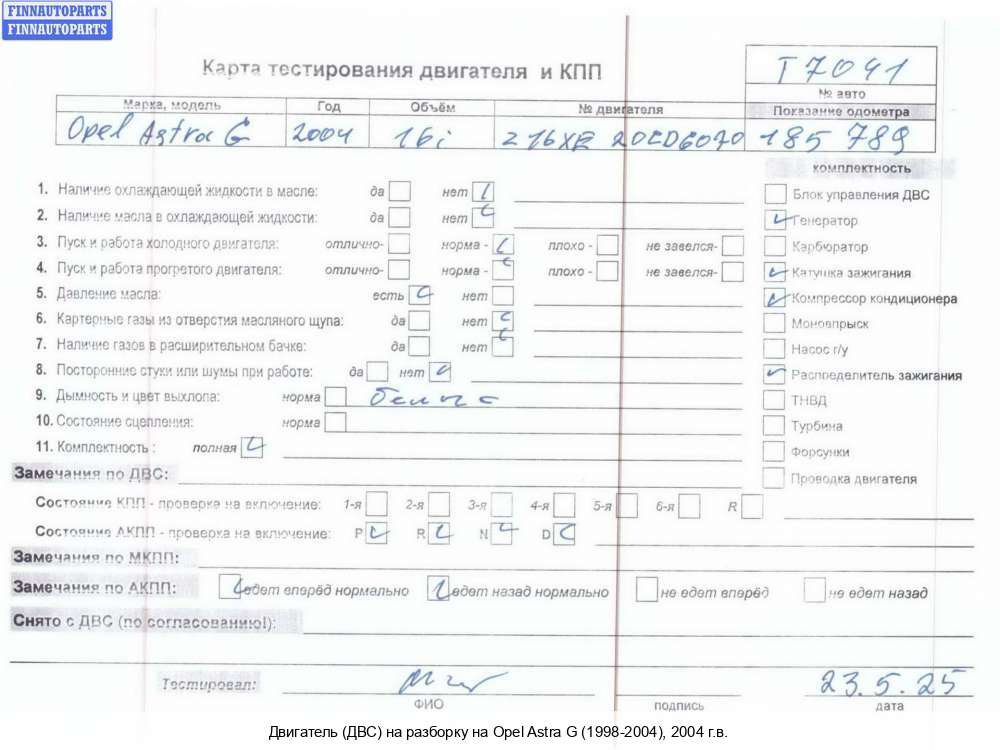 FINNAUTOPARTS
FINNAUTOPARTS
Карта тестирования двигателя и КПП
T7041
№ авто
Марка, модель Год Объём № двигателя Показание одометра
Opel Astra G 2004 16i Z16XE 20CD6070 185 789
комплектность
1. Наличие охлаждающей жидкости в масле: да нет
Блок управления ДВС
2. Наличие масла в охлаждающей жидкости: да нет
Генератор
3. Пуск и работа холодного двигателя: отлично- норма - плохо - не завелся-
Карбюратор
4. Пуск и работа прогретого двигателя: отлично- норма - плохо - не завелся-
Катушка зажигания
5. Давление масла: есть нет
Компрессор кондиционера
6. Картерные газы из отверстия масляного щупа: да нет
Моновпрыск
7. Наличие газов в расширительном бачке: да нет
Насос г/у
8. Посторонние стуки или шумы при работе: да нет
Распределитель зажигания
9. Дымность и цвет выхлопа: норма
ТНВД
10. Состояние сцепления: норма
Турбина
11. Комплектность : полная
Форсунки
Замечания по ДВС:
Проводка двигателя
Состояние КПП - проверка на включение: 1-я 2-я 3-я 4-я 5-я 6-я R
Состояние АКПП - проверка на включение: P R N D
Замечания по МКПП:
Замечания по АКПП: едет вперёд нормально едет назад нормально не едет вперёд не едет назад
Снято с ДВС (по согласованию!):
Тестировал: 23.5.25
ФИО подпись дата
Двигатель (ДВС) на разборку на Opel Astra G (1998-2004), 2004 г.в.